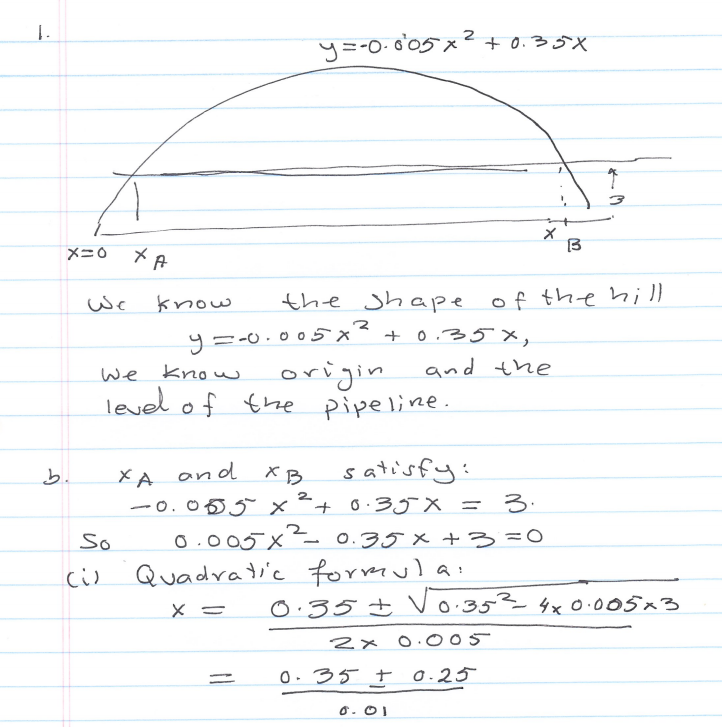 1.
y=-0.005x² + 0.35x
3
x=0 x A x B
We know the shape of the hill
y=-0.005x² + 0.35x,
we know origin and the
level of the pipeline.
b. x A and x B satisfy:
-0.005 x² + 0.35x = 3.
So 0.005x² - 0.35x + 3 = 0
(i) Quadratic formula:
x = 0.35 ± √0.35² - 4x 0.005x3
2x 0.005
= 0.35 ± 0.25
0.01